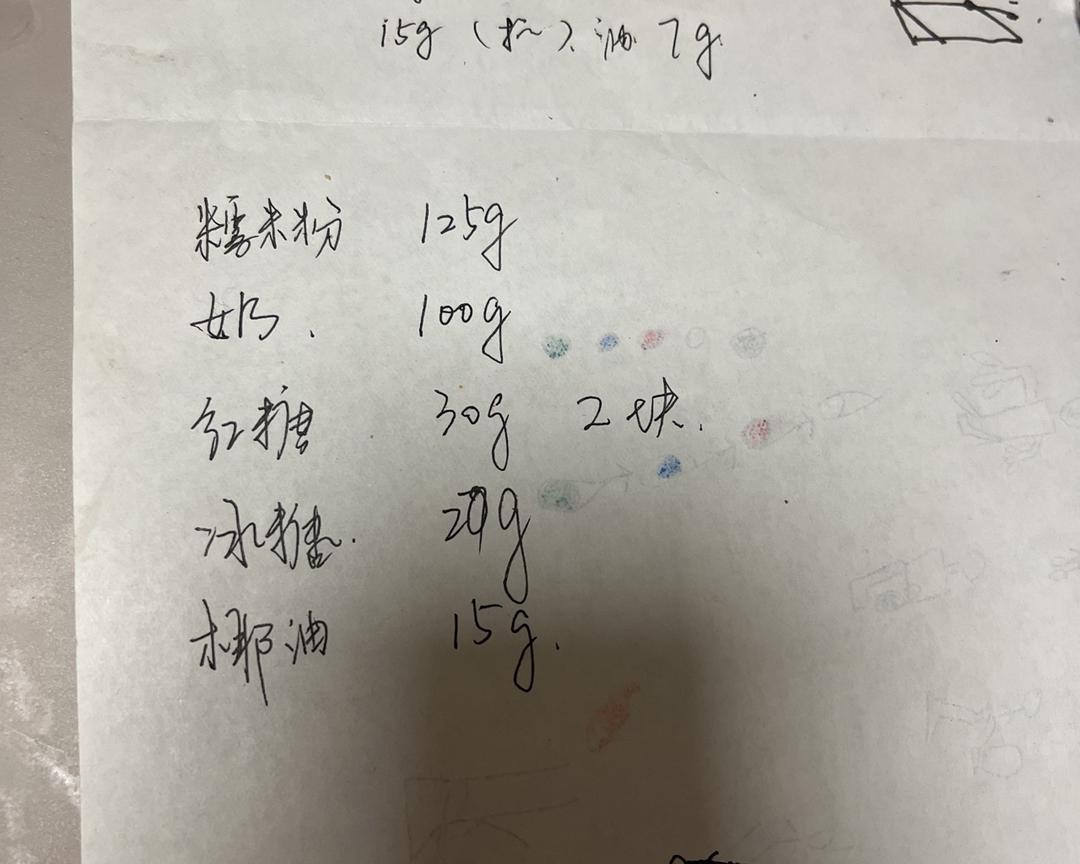 15g ( ) 油 7g.
糯米粉 125g
奶. 100g
红糖 30g 2块.
冰糖. g
椰油 15g.